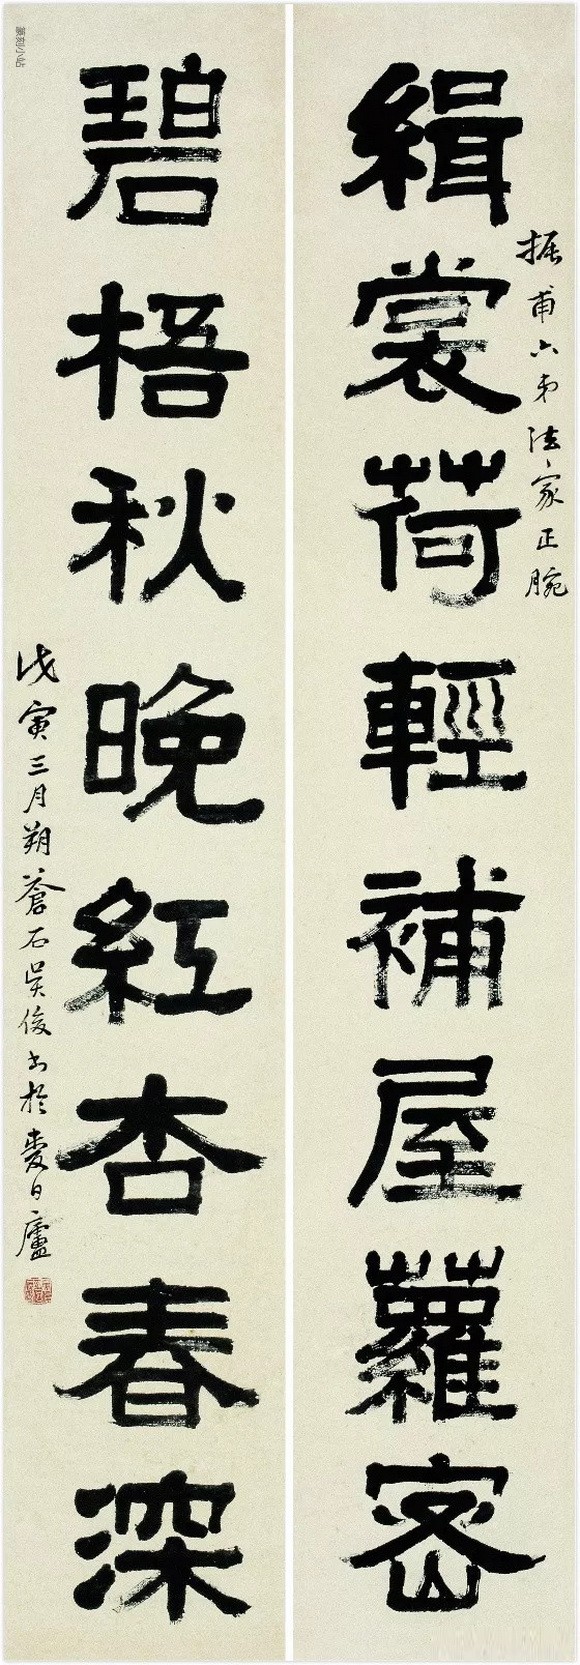 振甫六弟法家正腕
緝裳荷輕補屋蘿密
碧梧秋晚紅杏春深
戊寅三月朔蒼石吳俊書於愛日廬
篆刻小站